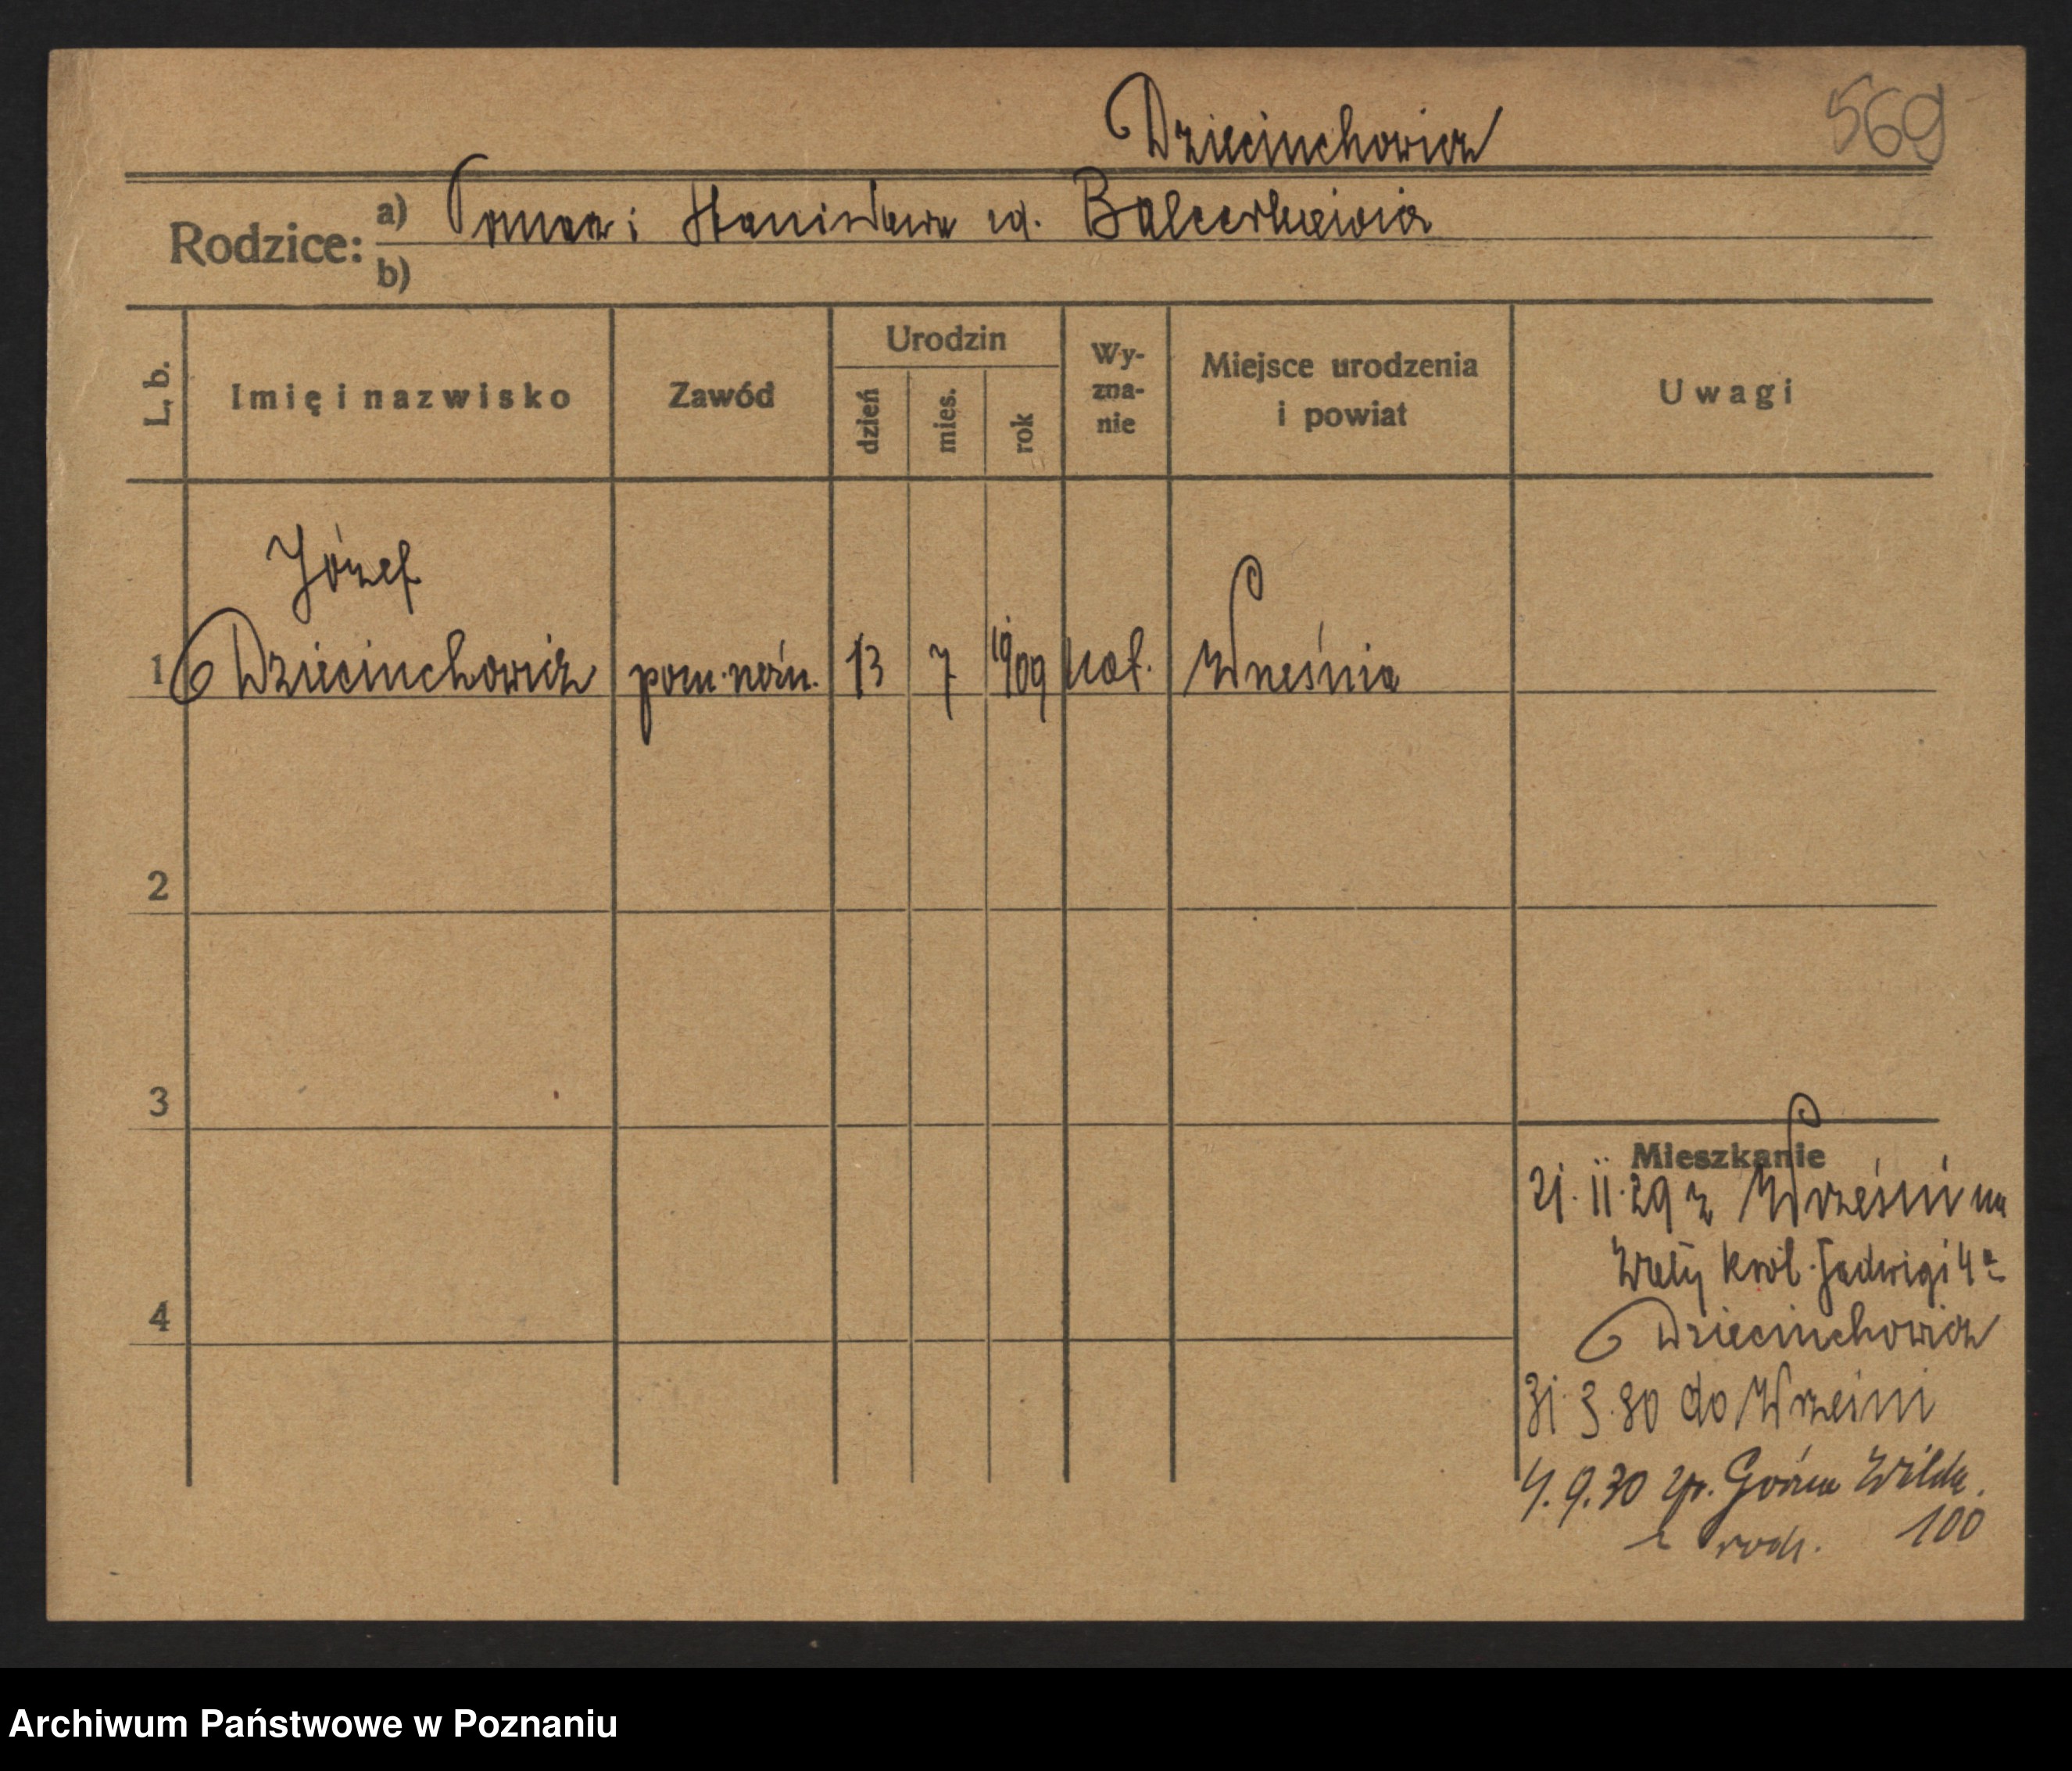 Dzieciuchowicz
569
Rodzice: a) Tomasz i Stanisława zd. Balcerkiewicz
b)
L. b.
Imię i nazwisko
Zawód
Urodzin
dzień
mies.
rok
Wy-
zna-
nie
Miejsce urodzenia
i powiat
Uwagi
Józef
1 Dzieciuchowicz pom. 13 7 1909 kat. Września
2
3
4
Mieszkanie
21.11.29 z Wrześni na
Król. Jadwigi 4a
Dzieciuchowicz
31.3.30 do Wrześni
4.9.30 Górna Wilda
100
Archiwum Państwowe w Poznaniu